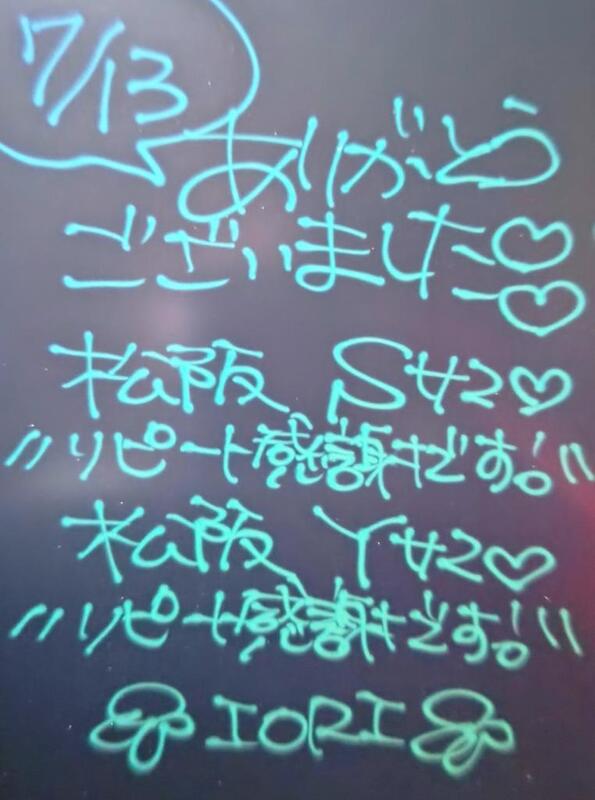 7/13
ありがとう
ございました♡♡
松阪 Sサン♡
〃リピート感謝です!〃
松阪 Yサン♡
〃リピート感謝です!〃
IORI